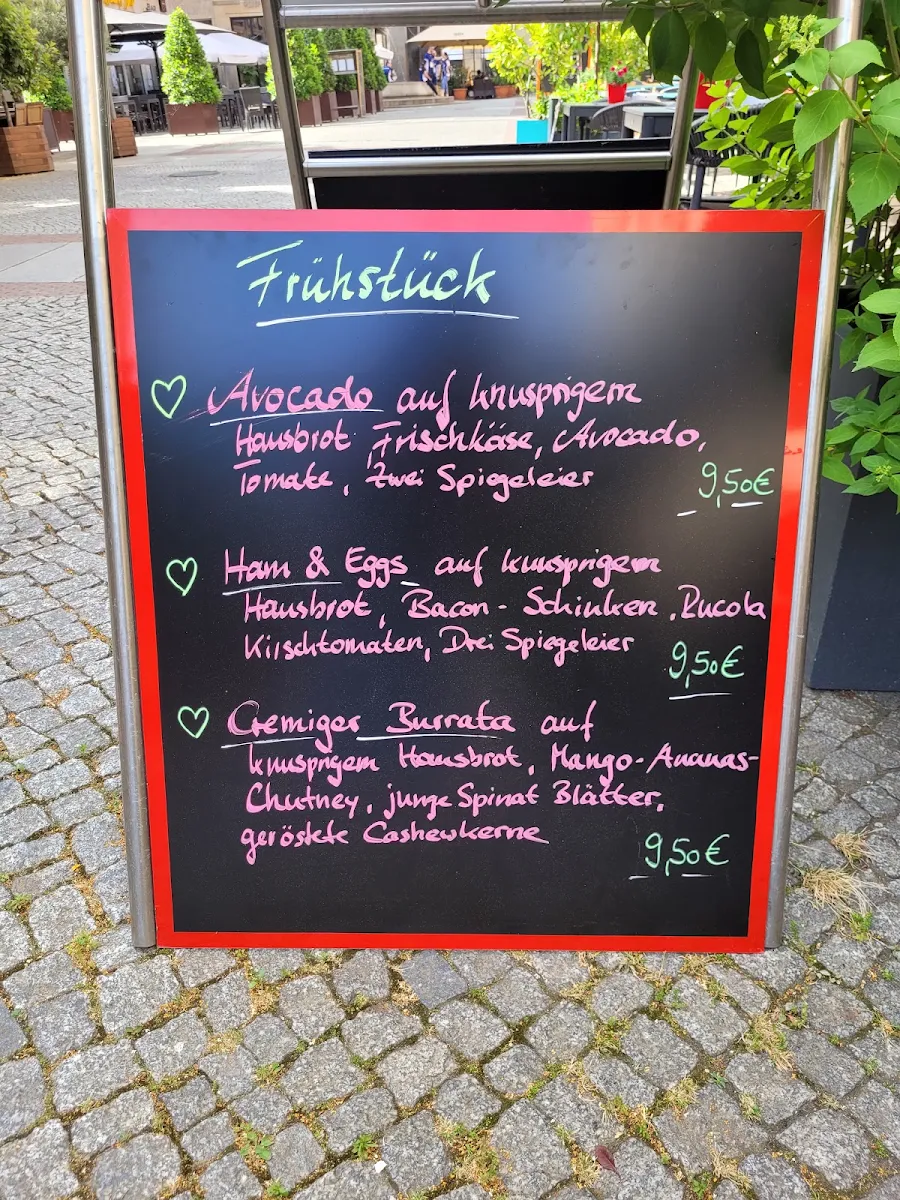 Frühstück
Avocado auf knusprigem
Hausbrot Frischkäse, Avocado,
Tomate, Zwei Spiegeleier
9,50€
Ham & Eggs auf knusprigem
Hausbrot, Bacon-Schinken, Rucola
Kirschtomaten, Drei Spiegeleier
9,50€
Cremiger Burrata auf
knusprigem Hausbrot, Mango-Ananas-
Chutney, junge Spinat Blätter,
geröstete Cashewkerne
9,50€